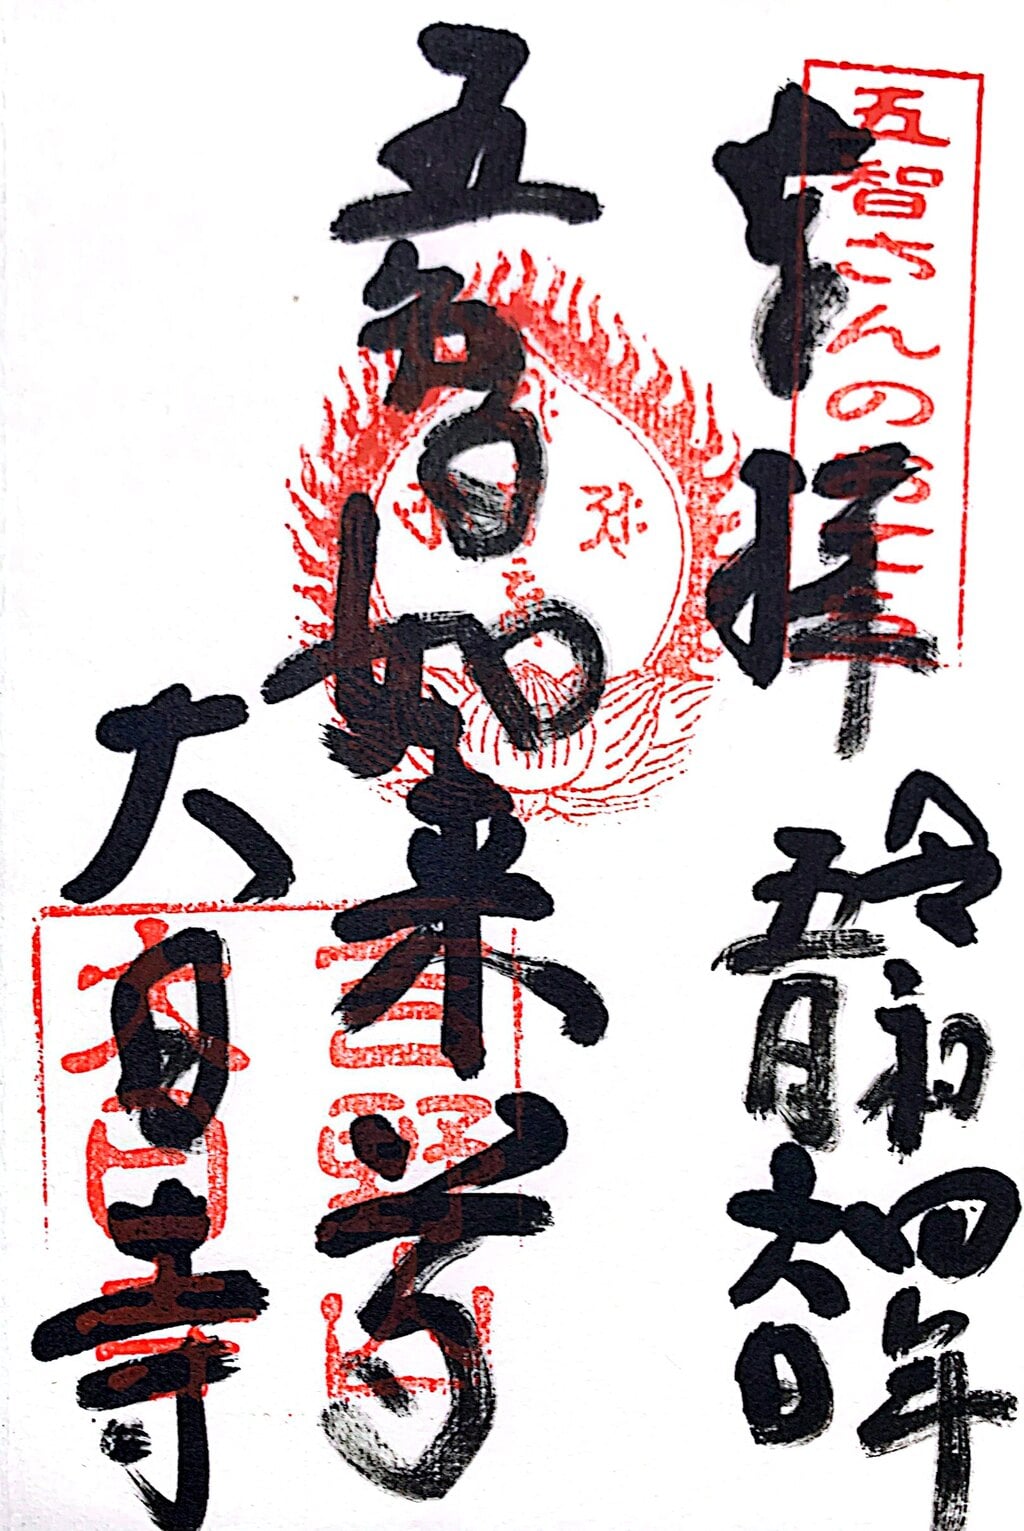 五智さんの
奉拝
令和四年
五月六日
五智如来尊
大日寺
吉野山
大日寺